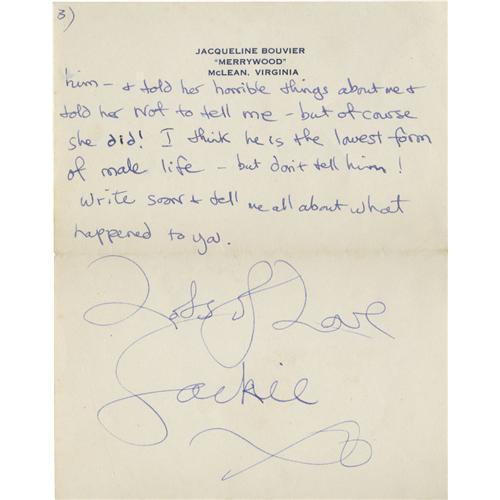 3)
JACQUELINE BOUVIER
"MERRYWOOD"
McLEAN, VIRGINIA
him - & told her horrible things about me &
told her Not to tell me - but of course
she did! I think he is the lowest form
of male life - but don't tell him!
Write soon & tell me all about what
happened to you.
Lots of Love
Jackie